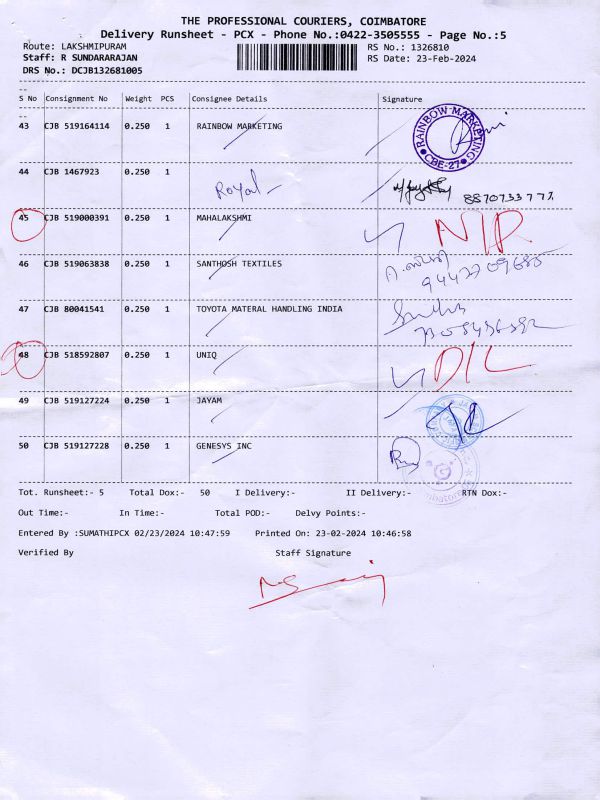 THE PROFESSIONAL COURIERS, COIMBATORE
Delivery Runsheet - PCX - Phone No.:0422-3505555 - Page No.:5
Route: LAKSHMIPURAM RS No.: 1326810
Staff: R SUNDARARAJAN RS Date: 23-Feb-2024
DRS No.: DCJB132681005
S No Consignment No Weight PCS Consignee Details Signature
43 CJB 519164114 0.250 1 RAINBOW MARKETING
RAINBOW MARKETING CBE-27
44 CJB 1467923 0.250 1
Royal
8870733771
45 CJB 519000391 0.250 1 MAHALAKSHMI
N/P
46 CJB 519063838 0.250 1 SANTHOSH TEXTILES
47 CJB 80041541 0.250 1 TOYOTA MATERAL HANDLING INDIA
48 CJB 518592807 0.250 1 UNIQ
D/L
49 CJB 519127224 0.250 1 JAYAM
50 CJB 519127228 0.250 1 GENESYS INC
Tot. Runsheet:- 5 Total Dox:- 50 I Delivery:- II Delivery:- RTN Dox:-
Out Time:- In Time:- Total POD:- Delvy Points:-
Entered By :SUMATHIPCX 02/23/2024 10:47:59 Printed On: 23-02-2024 10:46:58
Verified By Staff Signature